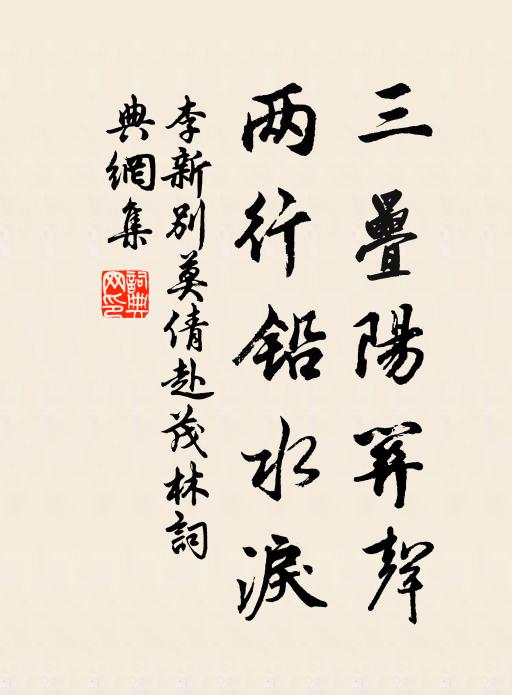 三疊陽關聲
两行鉛水淚
李新別莫倩赴茂林詞
典網集
詞典網印